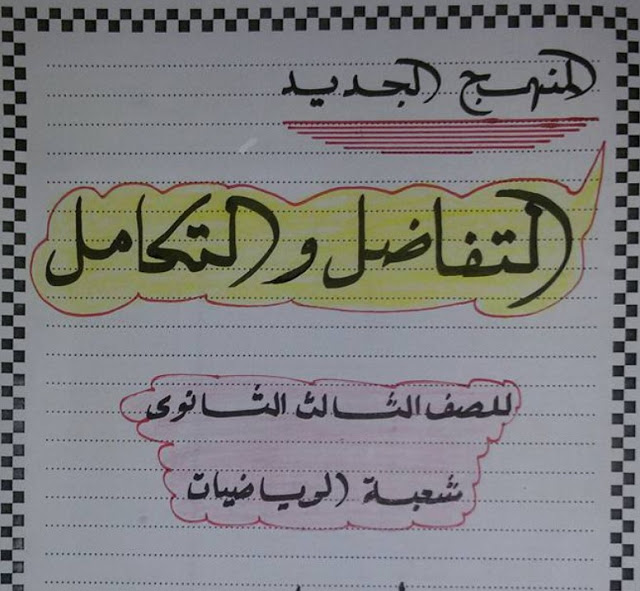 المنهج الجديد
التفاضل والتكامل
للصف الثالث الثانوى
شعبة الرياضيات